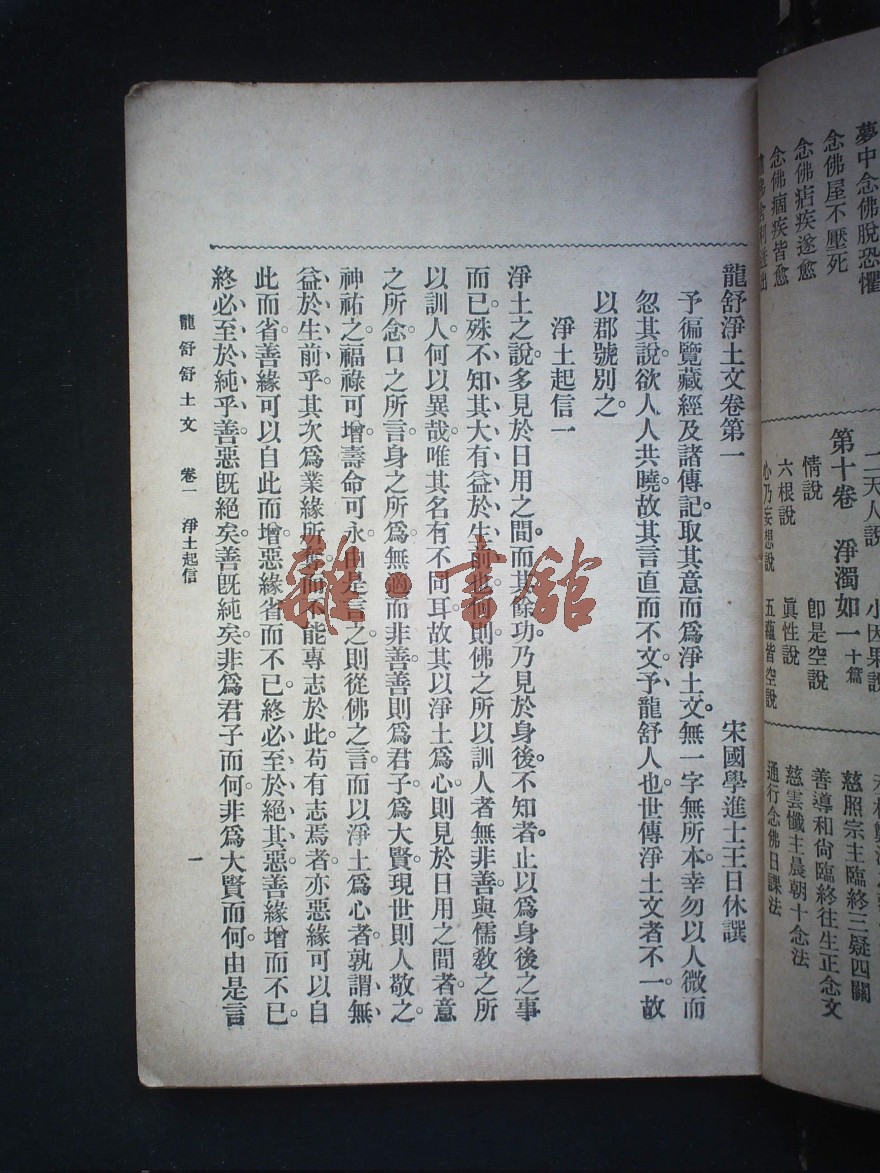 夢中念佛脫恐懼
念佛屋不壓死
念佛痁疾遂愈
念佛痼疾皆愈
天人說　小因果說
第十卷　淨濁如一十篇
情說　卽是空說
六根說　眞性說
心乃妄想說　五蘊皆空說
慈照宗主臨終三疑四關
善導和尙臨終往生正念文
慈雲懺主晨朝十念法
通行念佛日課法
龍舒淨土文卷第一　宋國學進士王日休譔
予徧覽藏經及諸傳記。取其意而爲淨土文。無一字無所本。幸勿以人微而
忽其說。欲人人共曉。故其言直而不文。予龍舒人也。世傳淨土文者不一。故
以郡號別之。
淨土起信一
淨土之說。多見於日用之間。而其餘功。乃見於身後。不知者。止以爲身後之事
而已。殊不知其大有益於生前也。何則。佛之所以訓人者。無非善。與儒敎之所
以訓人。何以異哉。唯其名有不同耳。故其以淨土爲心。則見於日用之間者。意
之所念。口之所言。身之所爲。無適而非善。善則爲君子。爲大賢。現世則人敬之。
神祐之。福祿可增。壽命可永。由是言之。則從佛之言。而以淨土爲心者。孰謂無
益於生前乎。其次爲業緣所奪。而不能專志於此。苟有志焉者。亦惡緣可以自
此而省。善緣可以自此而增。惡緣省而不已。終必至於絕其惡。善緣增而不已。
終必至於純乎善。惡旣絕矣。善旣純矣。非爲君子而何。非爲大賢而何。由是言
龍舒舒土文　卷一　淨土起信
一
雜·書舘